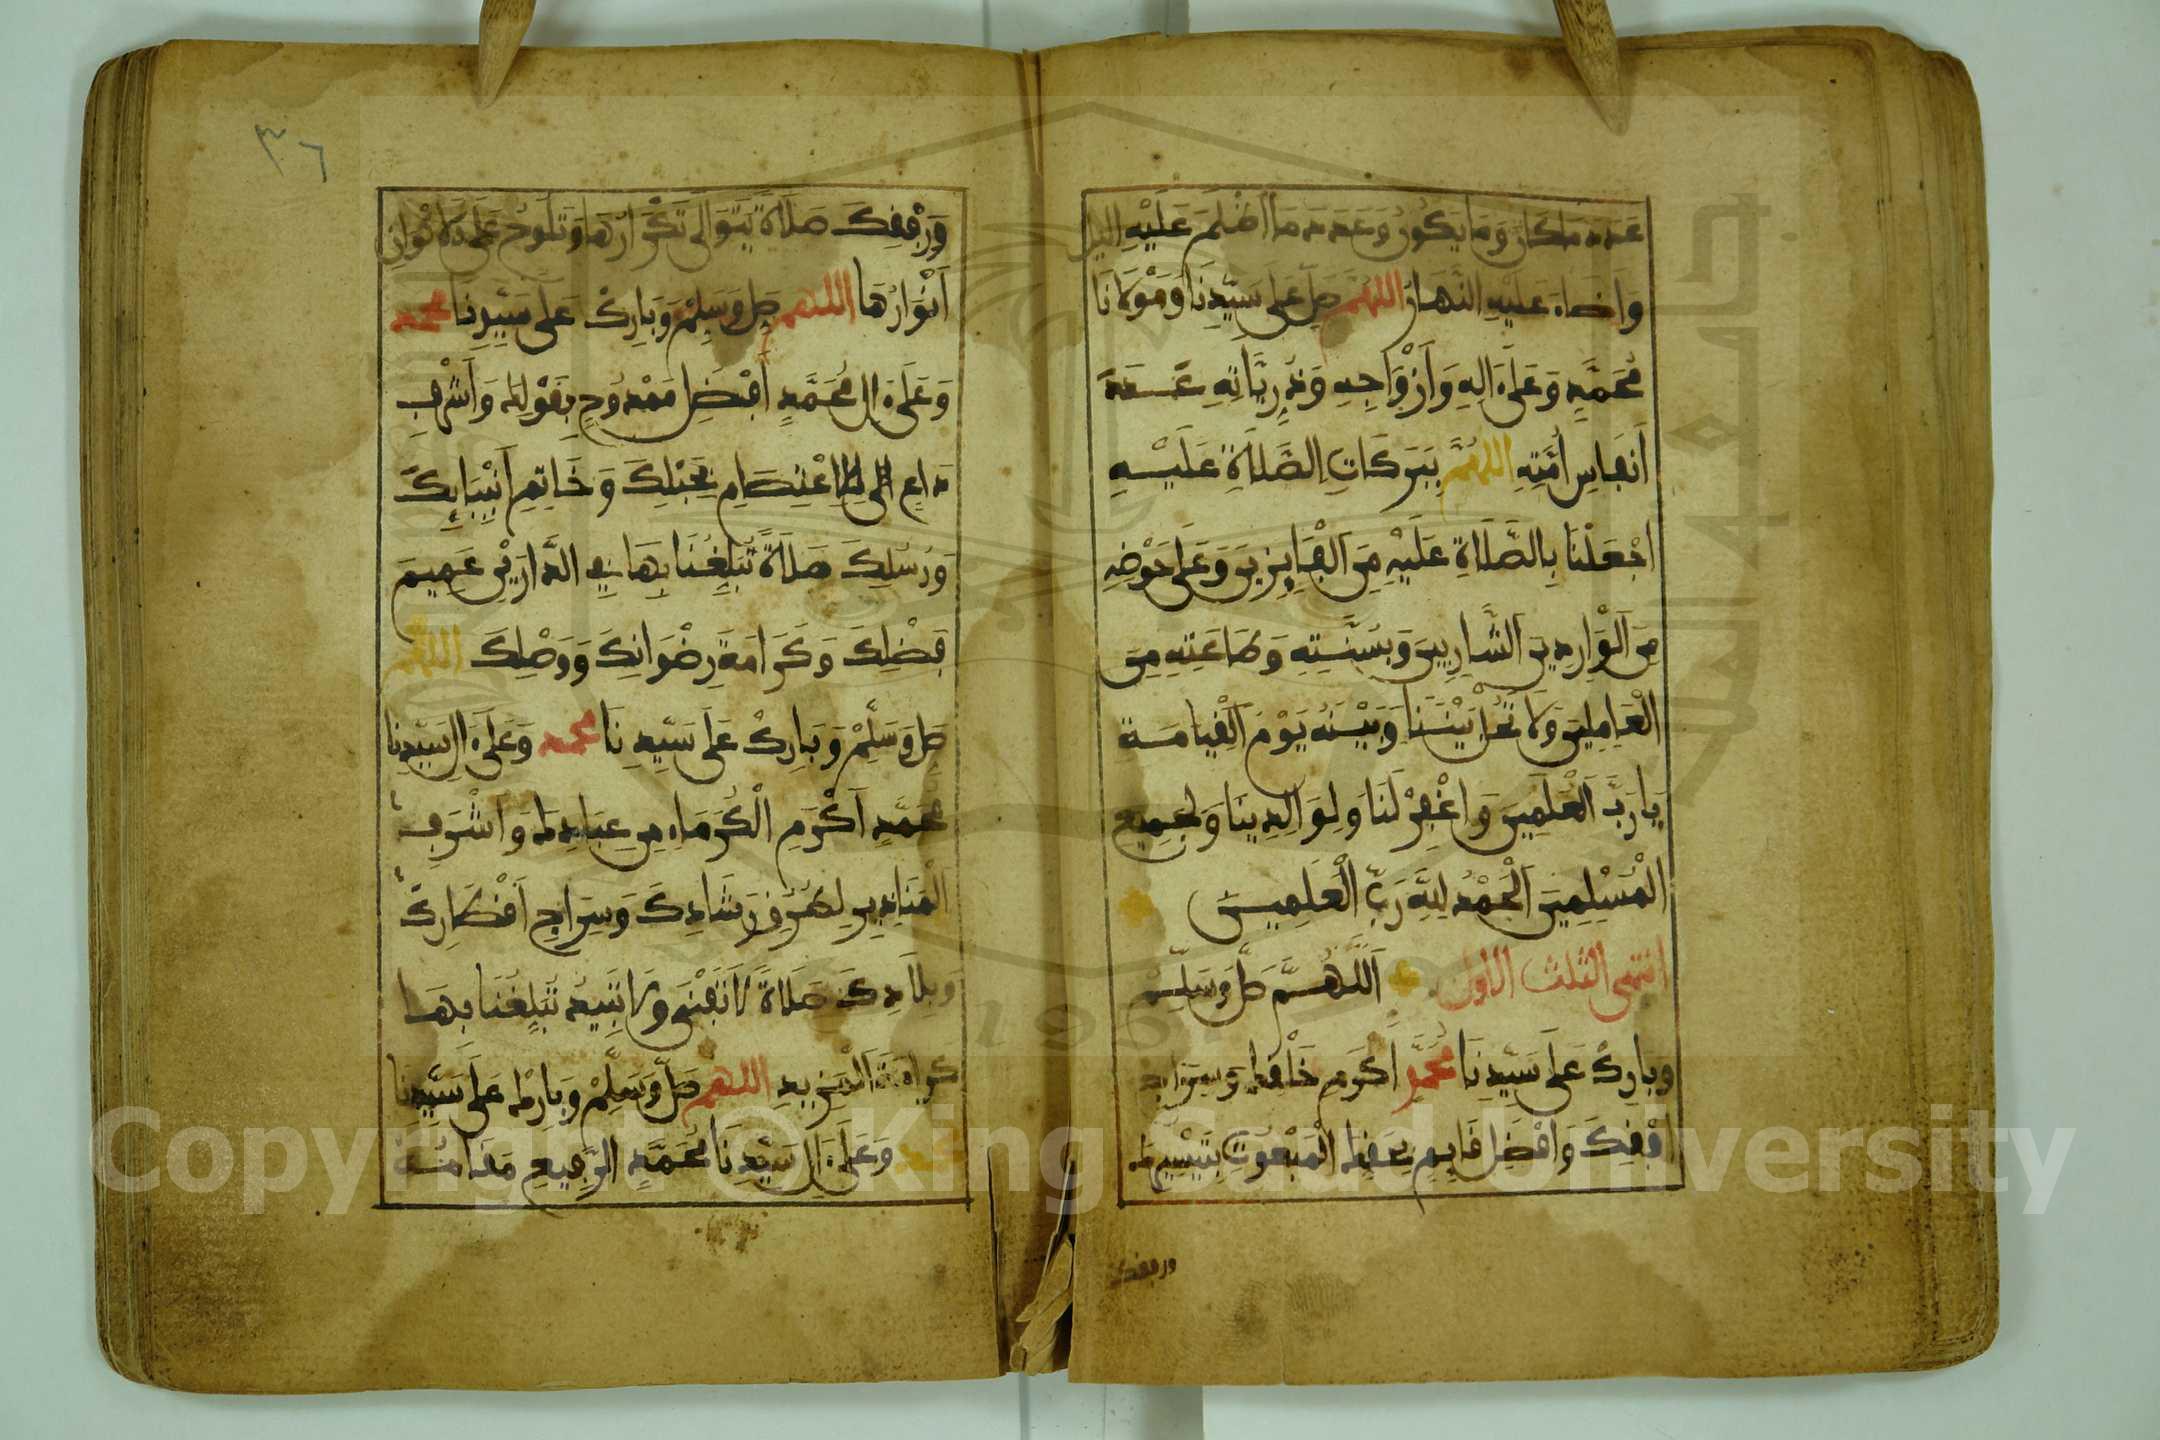 عَدَدَ مَا كَانَ وَمَا يَكُونُ وَعَدَدَ مَا أَظْلَمَ عَلَيْهِ اليل
وَأَضَاءَ عَلَيْهِ النَّهَارُ اللهم صَلِّ عَلَى سَيِّدِنَا وَمَوْلَانَا
مُحَمَّدٍ وَعَلَى ءَالِهِ وَأَزْوَاجِهِ وَذُرِّيَّاتِهِ عَدَدَ
أَنْفَاسِ أُمَّتِهِ اللهم بِبَرَكَاتِ الصَّلَاةِ عَلَيْهِ
اجْعَلْنَا بِالصَّلَاةِ عَلَيْهِ مِنَ الْفَايِزِينَ وَعَلَى حَوْضِهِ
مِنَ الْوَارِدِينَ الشَّارِبِينَ وَبِسُنَّتِهِ وَطَاعَتِهِ مِنَ
الْعَامِلِينَ وَلَا تَحُلْ بَيْنَنَا وَبَيْنَهُ يَوْمَ الْقِيَامَةِ
يَا رَبَّ الْعَلَمِينَ وَاغْفِرْ لَنَا وَلِوَالِدِينَا وَلِجَمِيعِ
الْمُسْلِمِينَ الْحَمْدُ لِلَّهِ رَبِّ الْعَلَمِينَ
انتهى الثلث الاول اَللَّهُمَّ صَلِّ وَسَلِّمْ
وَبَارِكْ عَلَى سَيِّدِنَا مُحَمَّدٍ أَكْرَمِ خَلْقِكَ وَسِرَاجِ
أُفُقِكَ وَأَفْضَلِ قَايِمٍ بِحَقِّكَ الْمَبْعُوثِ بِتَيْسِيرِكَ
ورفقك
٣٦
وَرِفْقِكَ صَلَاةً يَتَوَالَى تَكْرَارُهَا وَتَلُوحُ عَلَى الاكْوَانِ
أَنْوَارُهَا اللهم صَلِّ وَسَلِّمْ وَبَارِكْ عَلَى سَيِّدِنَا محمد
وَعَلَى ءَالِ مُحَمَّدٍ أَفْضَلِ مَمْدُوحٍ بِقَوْلِكَ وَأَشْرَفِ
دَاعٍ إِلَى الِاعْتِصَامِ بِحَبْلِكَ وَخَاتِمِ أَنْبِيَايِكَ
وَرُسُلِكَ صَلَاةً تُبَلِّغُنَا بِهَا فِي الدَّارَيْنِ عَمِيمَ
فَضْلِكَ وَكَرَامَةَ رِضْوَانِكَ وَوَصْلِكَ اللهم
صَلِّ وَسَلِّمْ وَبَارِكْ عَلَى سَيِّدِنَا محمد وَعَلَى ءَالِ سَيِّدِنَا
مُحَمَّدٍ أَكْرَمِ الْكُرَمَاءِ مِنْ عِبَادِكَ وَأَشْرَفِ
الْمُنَادِينَ لِطُرُقِ رَشَادِكَ وَسِرَاجِ أَقْطَارِكَ
وَبِلَادِكَ صَلَاةً لَا تَفْنَى وَلَا تَبِيدُ تُبَلِّغُنَا بِهَا
كَرَامَةَ الْمَزِيدِ اللهم صَلِّ وَسَلِّمْ وَبَارِكْ عَلَى سَيِّدِنَا
محمد وَعَلَى ءَالِ سَيِّدِنَا مُحَمَّدٍ الرَّفِيعِ مَقَامُهُ
Copyright © King Saud University
1957